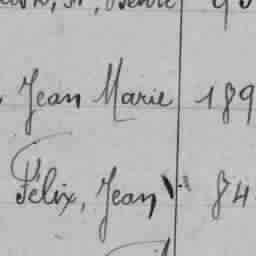 Jean Marie 189
Félix, Jean 84